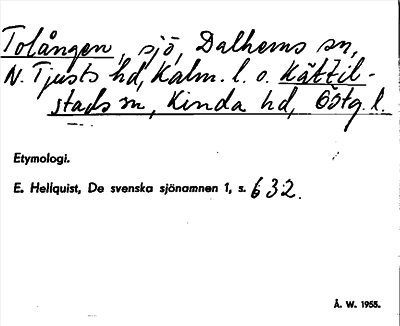 Tolången, sjö, Dalhems sn,
N. Tjusts hd, Kalm. l. o. Kättil-
stads sn, Kinda hd, Östg. l.
Etymologi.
E. Hellquist, De svenska sjönamnen 1, s. 632.
Å. W. 1955.